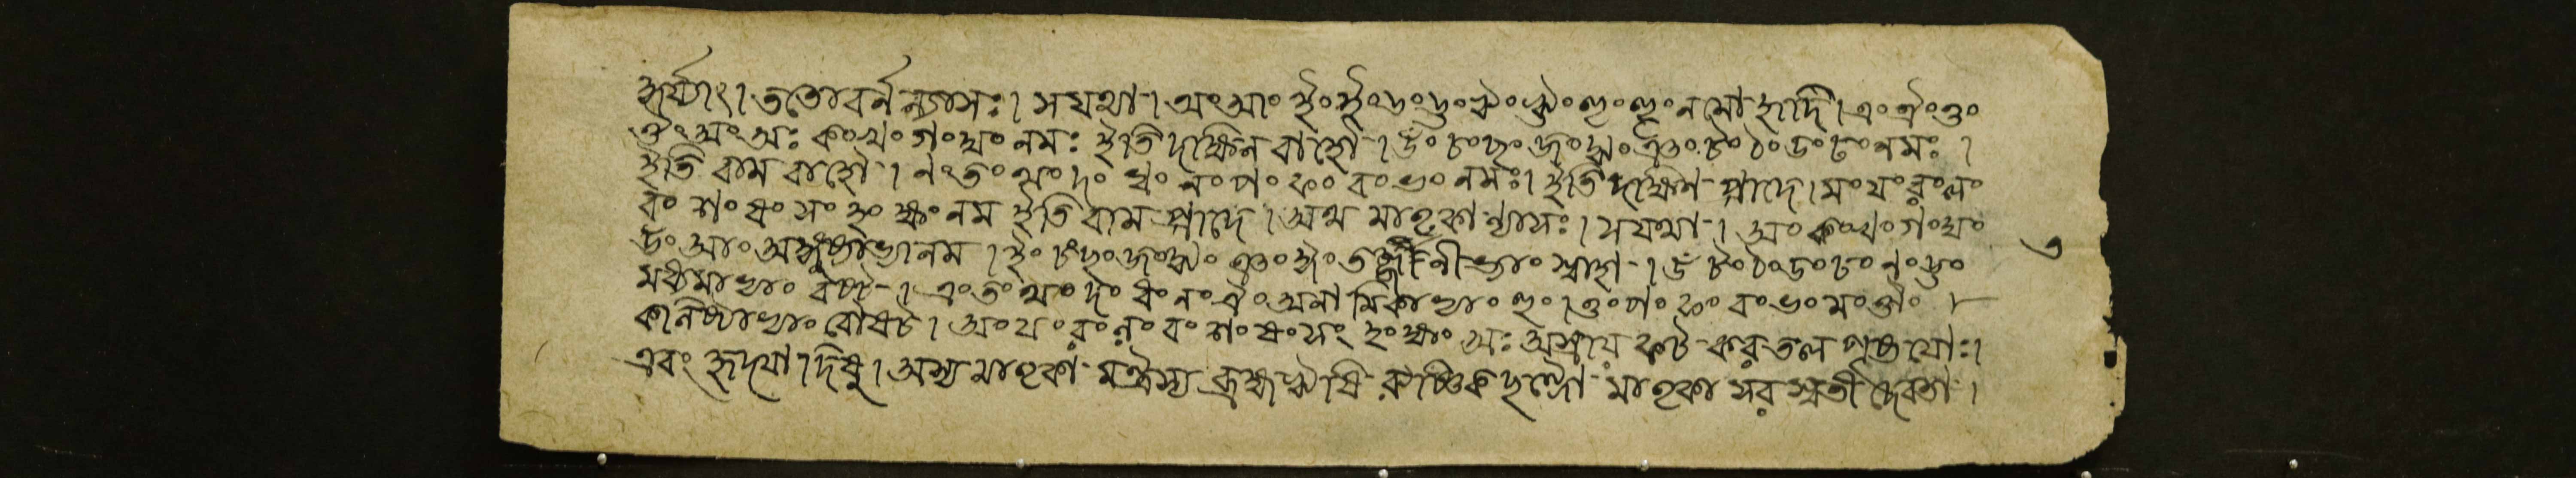 কুর্য্যাৎ। ততো বর্ন ন্যাসঃ। স যথা। অং আং ইং ঈং উং ঊং ঋং ৠং ঌং ৡং নমো হৃদি। এং ঐং ওং
ঔং অং অঃ কং খং গং ঘং নমঃ ইতি দক্ষিন বাহৌ। ঙং চং ছং জং ঝং ঞং টং ঠং ডং ঢং নমঃ।
ইতি বাম বাহৌ। ণং তং থং দং ধং নং পং ফং বং ভং নমঃ। ইতি দক্ষিণ পাদে। মং যং রং লং
বং শং ষং সং হং ক্ষং নম ইতি বাম পাদে। অথ মাতৃকা ন্যাসঃ। স যথা। অং কং খং গং ঘং
ঙং আং অঙ্গুষ্ঠাভ্যা নম। ইং চং ছং জং ঝং ঞং ঈং তর্জ্জনীভ্যাং স্বাহা। উং টং ঠং ডং ঢং ণং ঊং
মধ্যমাভ্যাং বষট্। এং তং থং দং ধং নং ঐং অনামিকাভ্যাং হুং। ওং পং ফং বং ভং মং ঔং
কনিষ্ঠাভ্যাং বৌষট। অং যং রং লং বং শং ষং সং হং ক্ষং অঃ অস্ত্রায় ফট করতল পৃষ্ঠয়োঃ।
এবং হৃদয়াদিষু। অস্য মাতৃকা মন্ত্রস্য ব্রহ্ম ঋষি ছন্দো মাতৃকা সরস্বতী দেবতা।